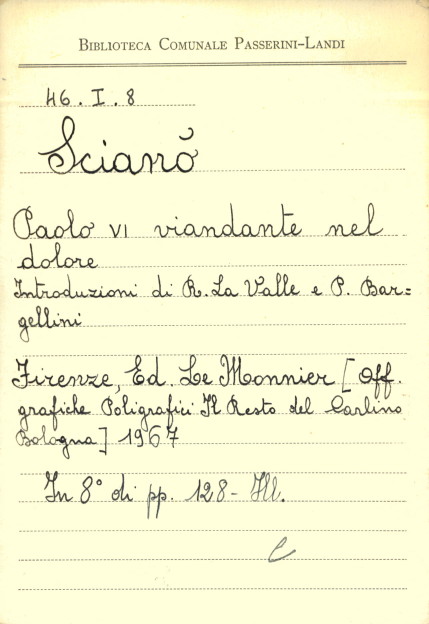 BIBLIOTECA COMUNALE PASSERINI-LANDI
46. I. 8
Scianò
Paolo VI viandante nel
dolore
Introduzioni di R. La Valle e P. Bar=
gellini
Firenze, Ed. Le Monnier [Off.
grafiche Poligrafici Il Resto del Carlino
Bologna] 1967
In 8° di pp. 128 - Ill.